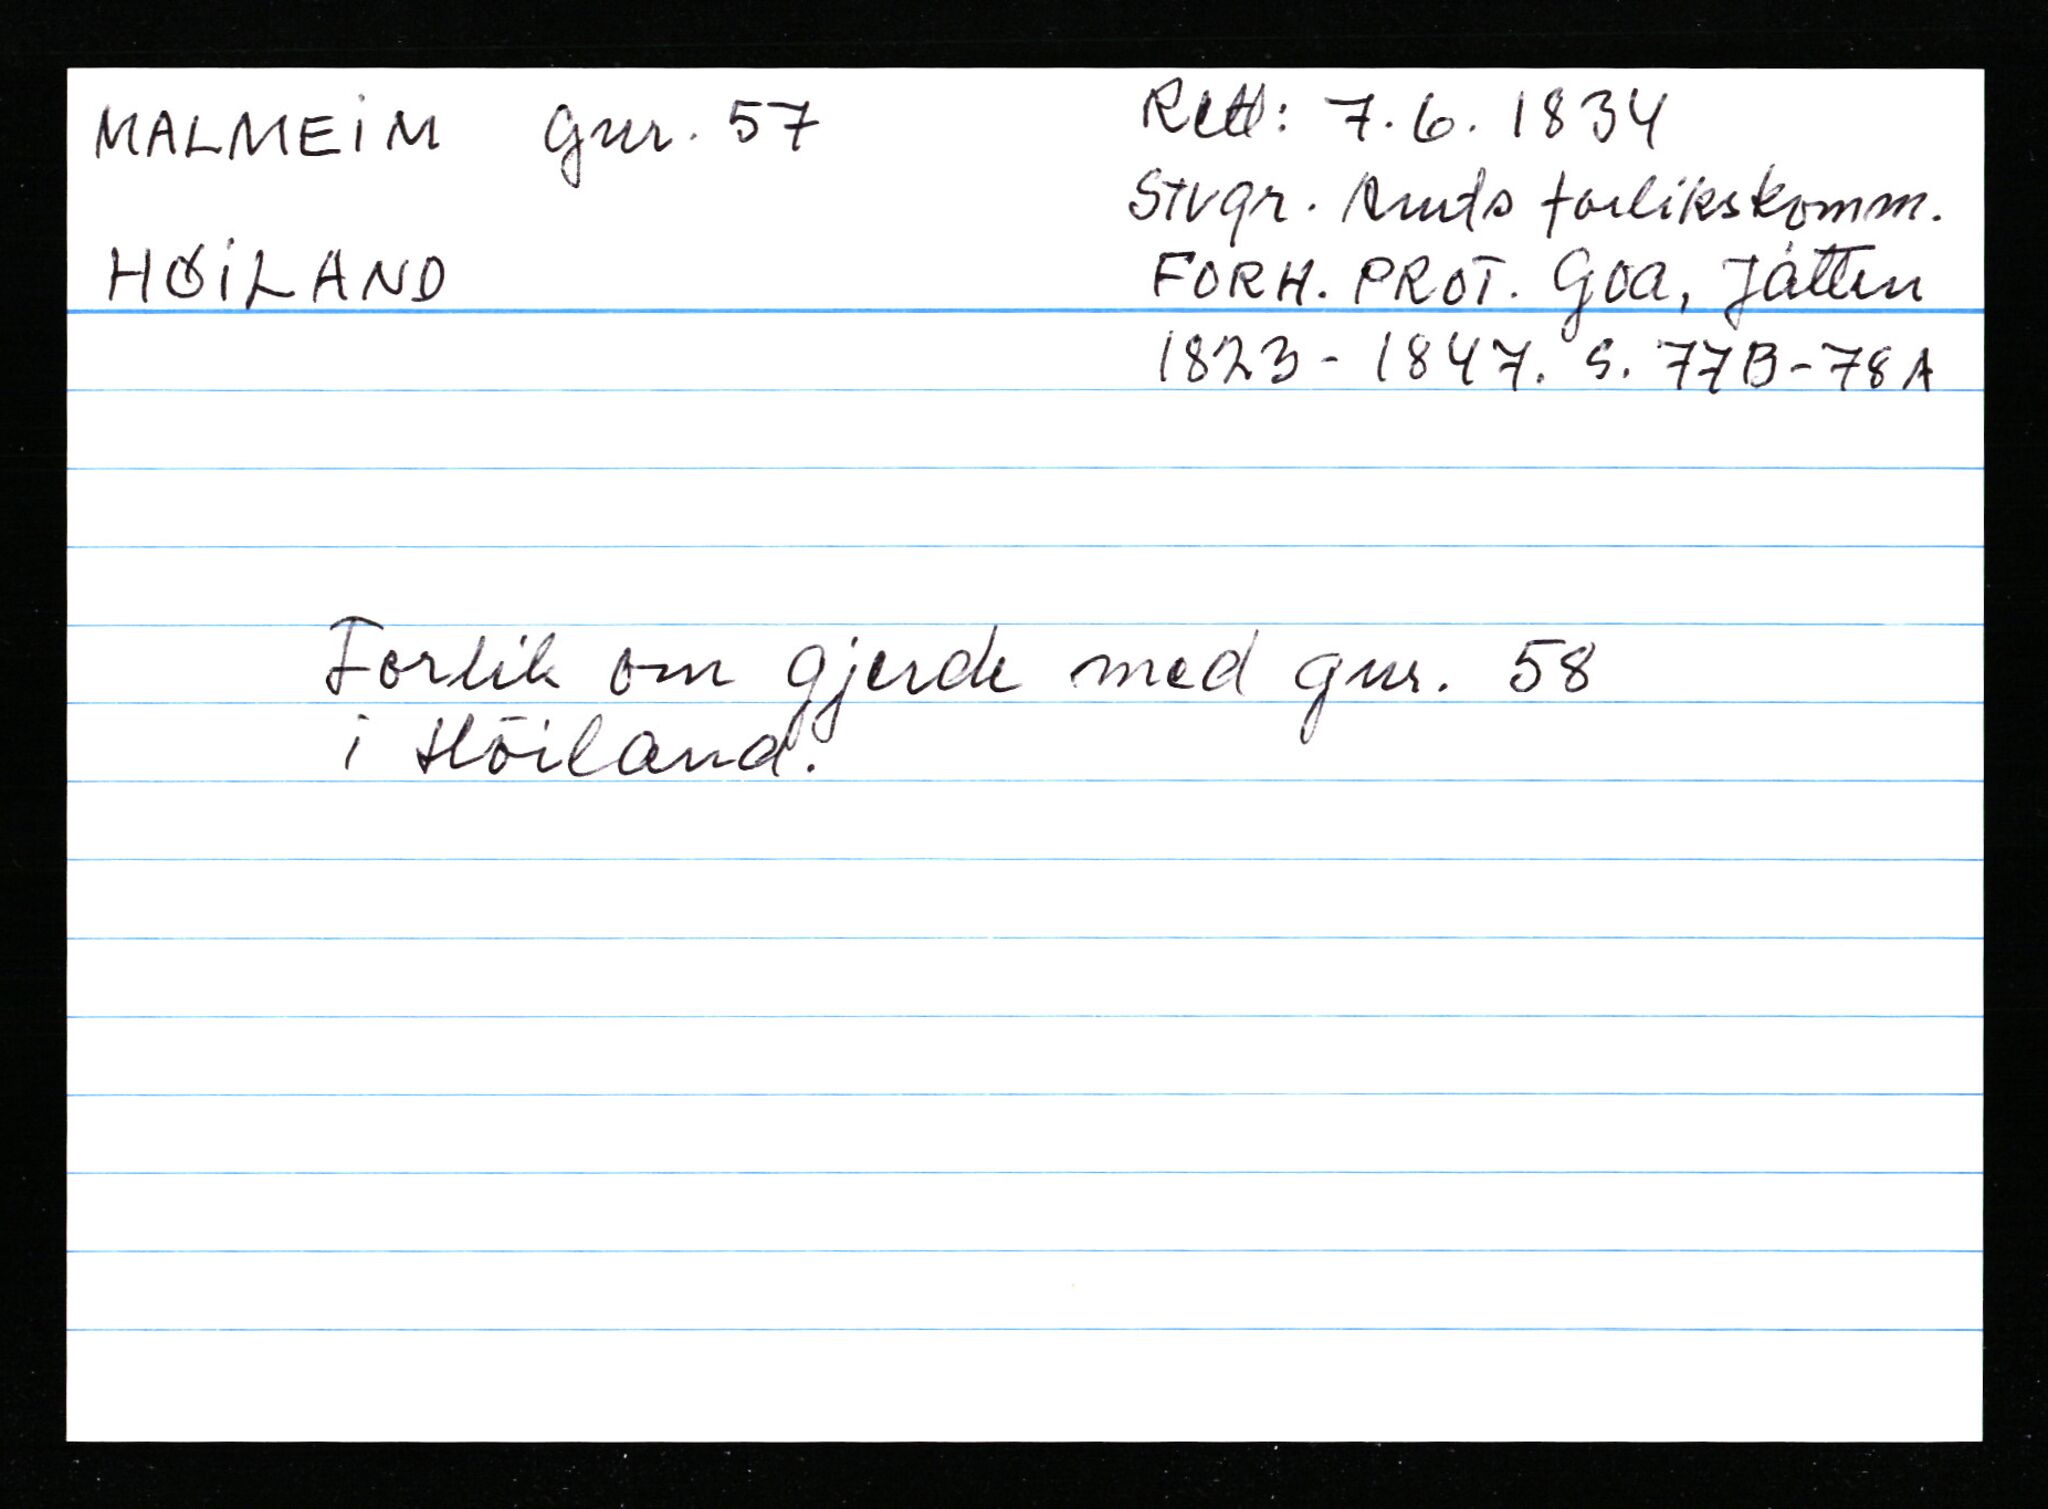 MALMEIM gnr. 57
HØILAND
Rett: 7.6.1834
Stvgr. Amts forlikskomm.
FORH. PROT. Goa, Jåtten
1823-1847. S. 77B-78A
Forlik om gjerde med gnr. 58
i Höiland.